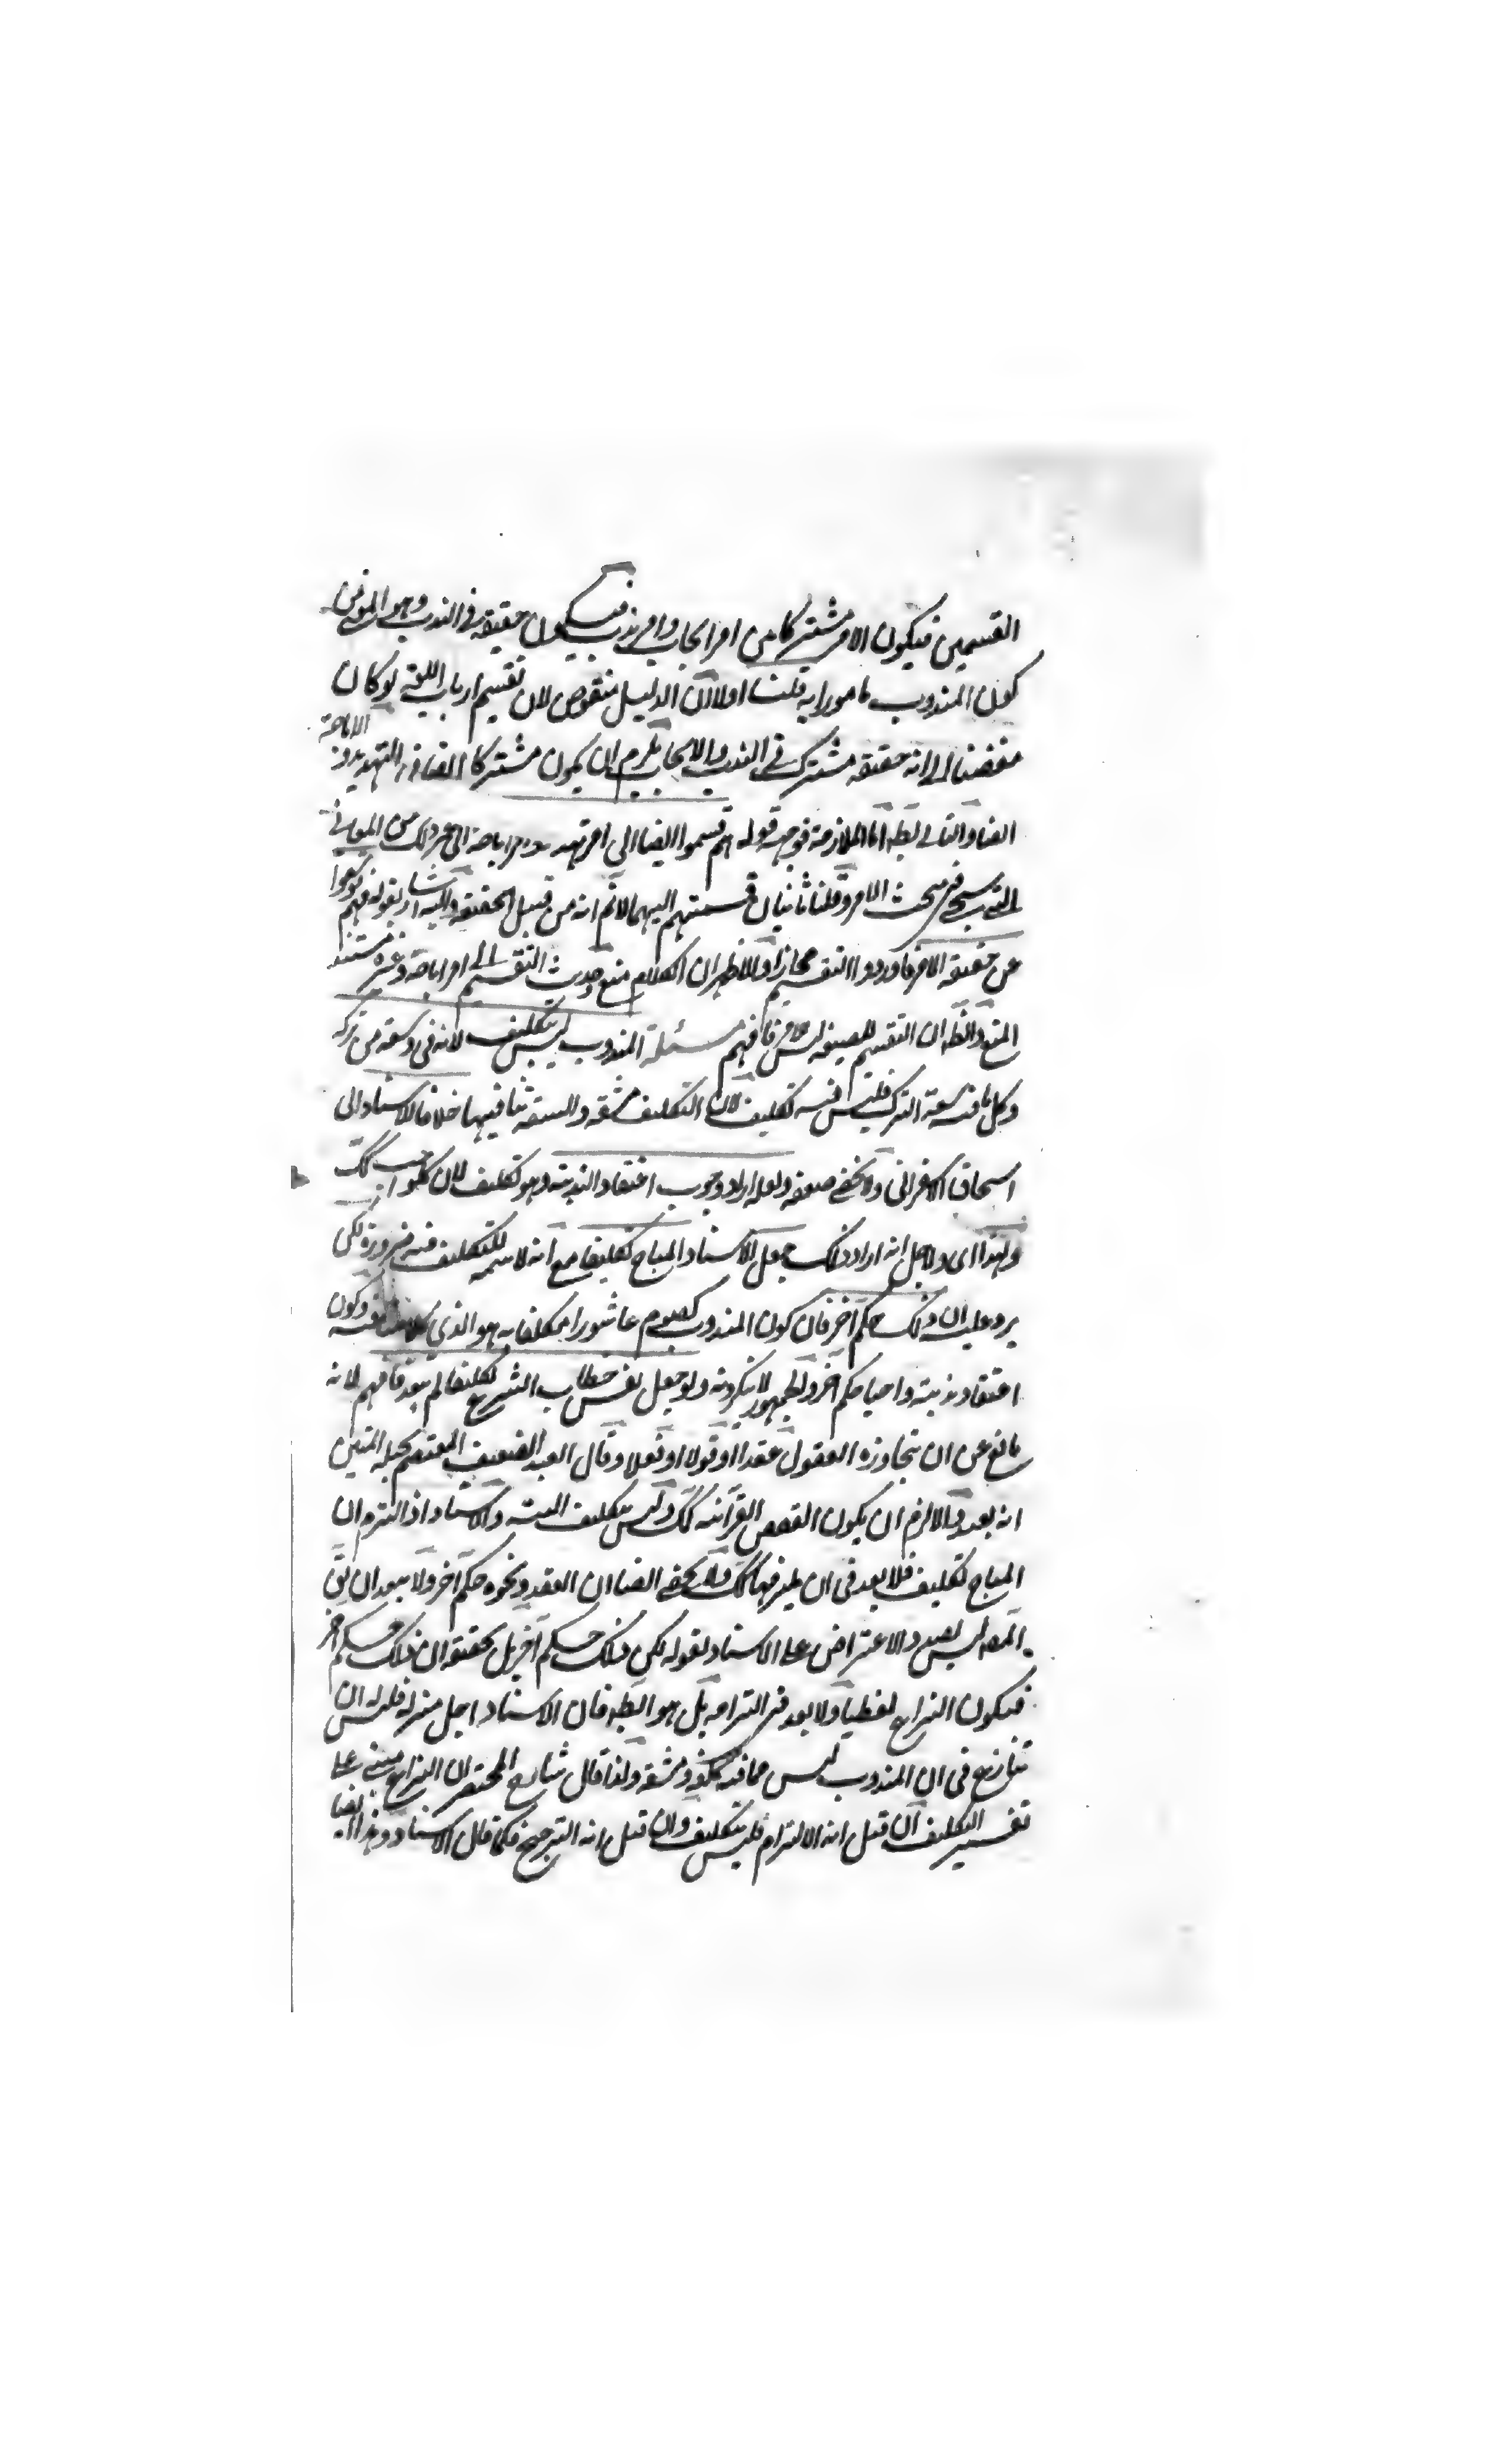 القسمين فيكون الامر مشتركا من امر ايجاب وامر ندب فيكون حقيقة في الندب وهو
كون المندوب مامورا به قلنا اولا ان الدليل منقوض لان تقسيم ارباب اللغة لو كان
الاباحة
مفضيا الى انه حقيقة مشترك في الندب والايجاب يلزم ان يكون مشتركا ايضا في التهديد
ايضا والتالي بط اما الملازمة فوجهه قوله هم قسموا ايضا الى امر تهديد وامر اباحة الى غير ذلك من المعاني
التي سيجيء في مبحث الامر وقلنا ثانيا ان قسمتهم اليهما لا نم انه من قبيل الحقيقة واليه اشار بقوله فهم توسعوا
عن حقيقة الامر فاوردوا التقسيم مجازا والاظهر ان الكلام منع وحديث التقسيم الى امر اباحة وغيره مستند
المنع والظ ان التقسيم للصيغة ليس الامر فافهم مسئلة المندوب ليس بتكليف لانه في سعة من تركه
وكل ما فيه سعة الترك فليس فيه تكليف لان التكليف مشقة والسعة تنافيها خلافا للاستاد ابي
اسحاق الاسفرائني ولا يخفى ضعفه ولعله اراد وجوب اعتقاد الندبية وهو تكليف لان كل واجب كك
ولهذا اى ولاجل انه اراد ذلك جعل الاستاد المباح تكليفا مع انه لا سمة للتكليف فيه ضرورة لكن
يرد عليه ان ذلك حكم آخر فان كون المندوب كصوم عاشورا مكلفا به هو الذي وكون
اعتقاد ندبيته واجبا حكم آخر والجمهور لا ينكرونه ولو جعل نفس خطاب الشرع تكليفا لم يبعد فافهم لانه
مانع عن ان يتجاوزه العقول عقدا او قولا او فعلا وقال العبد الضعيف المعتصم بحبله المتين
انه بعيد والا لزم ان يكون القصص القرآنية كك وليس بتكليف البتة والاستاد اذا التزم ان
المباح تكليف فلا يبعد في ان يلتزم فيها كك ولا يخفى ايضا ان العقد ونحوه حكم آخر ولا يبعد ان يق
المصـ ليس بصدد الاعتراض على الاستاد بقوله لكن ذلك حكم آخر بل تحقيقه ان ذلك حكم آخر
فيكون النزاع لفظيا ولا بعد في التزامه بل هو الظ فان الاستاد اجل منزلة فليس له ان
ينازع في ان المندوب ليس مما فيه كلفة ومشقة ولذا قال شارح المختصر ان النزاع مبني على
تفسير التكليف ان قيل انه الالتزام فليس بتكليف وان قيل انه الترجيح فكما قال الاستاد وهذا ايضا